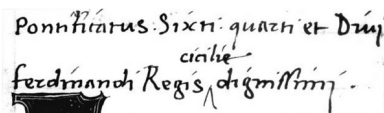 Pontificatus : Sixti : quarti et Diui
cicilie
ferdinandi Regis ^ dignissimi .